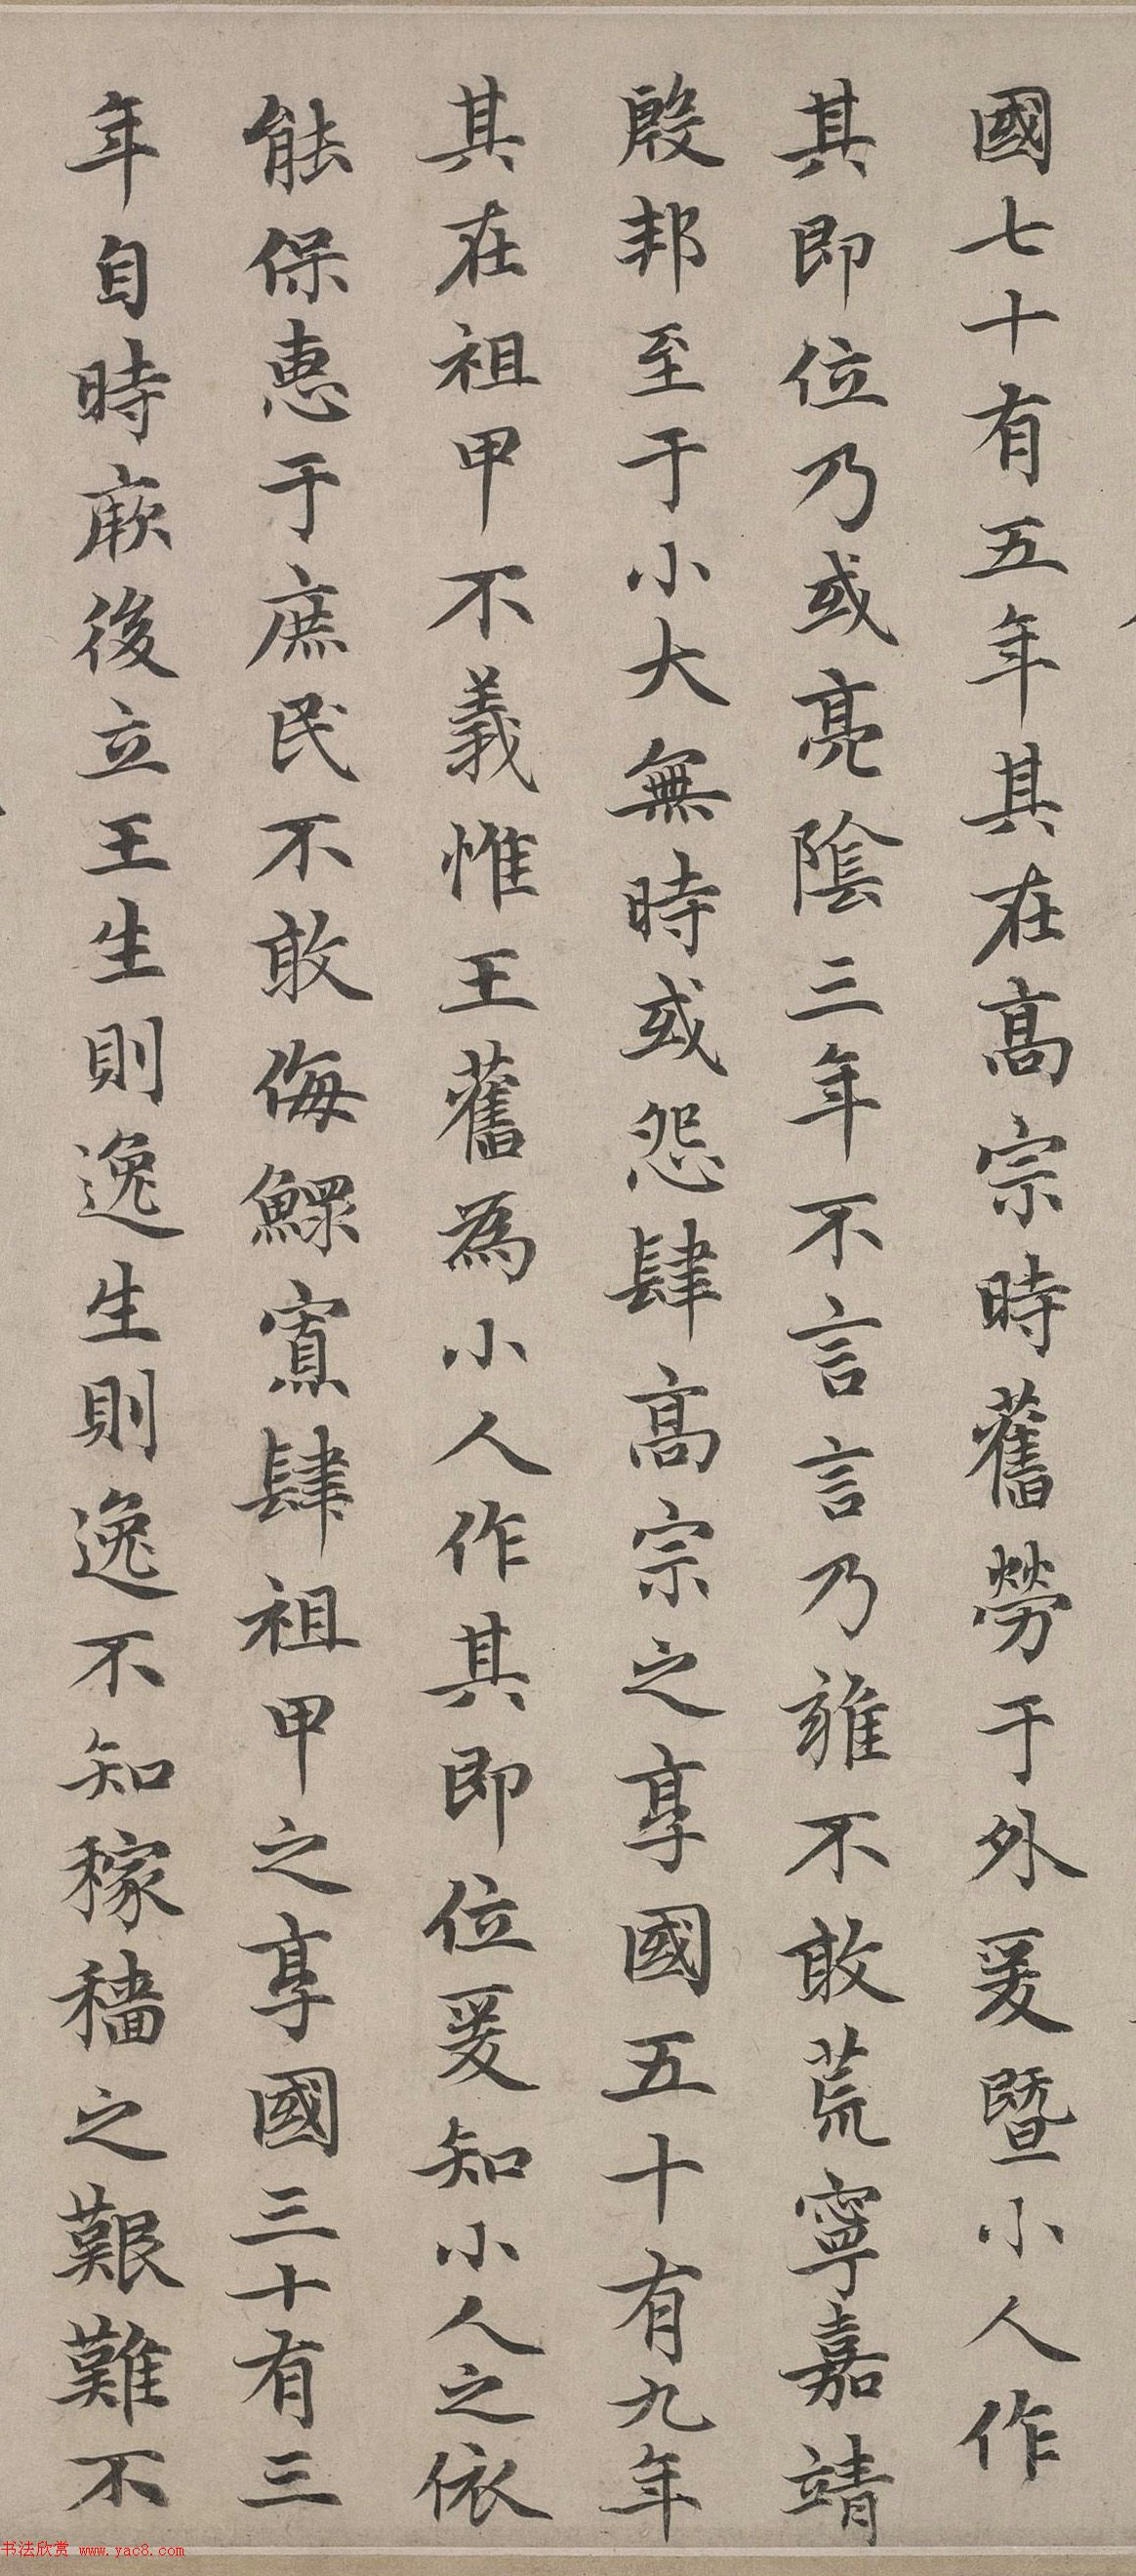 國七十有五年其在髙宗時舊勞于外爰暨小人作
其即位乃或亮陰三年不言言乃雍不敢荒寧嘉靖
殷邦至于小大無時或怨肆髙宗之享國五十有九年
其在祖甲不義惟王舊為小人作其即位爰知小人之依
能保惠于庶民不敢侮鰥寡肆祖甲之享國三十有三
年自時厥後立王生則逸生則逸不知稼穡之艱難不
书法欣赏 www.yac8.com